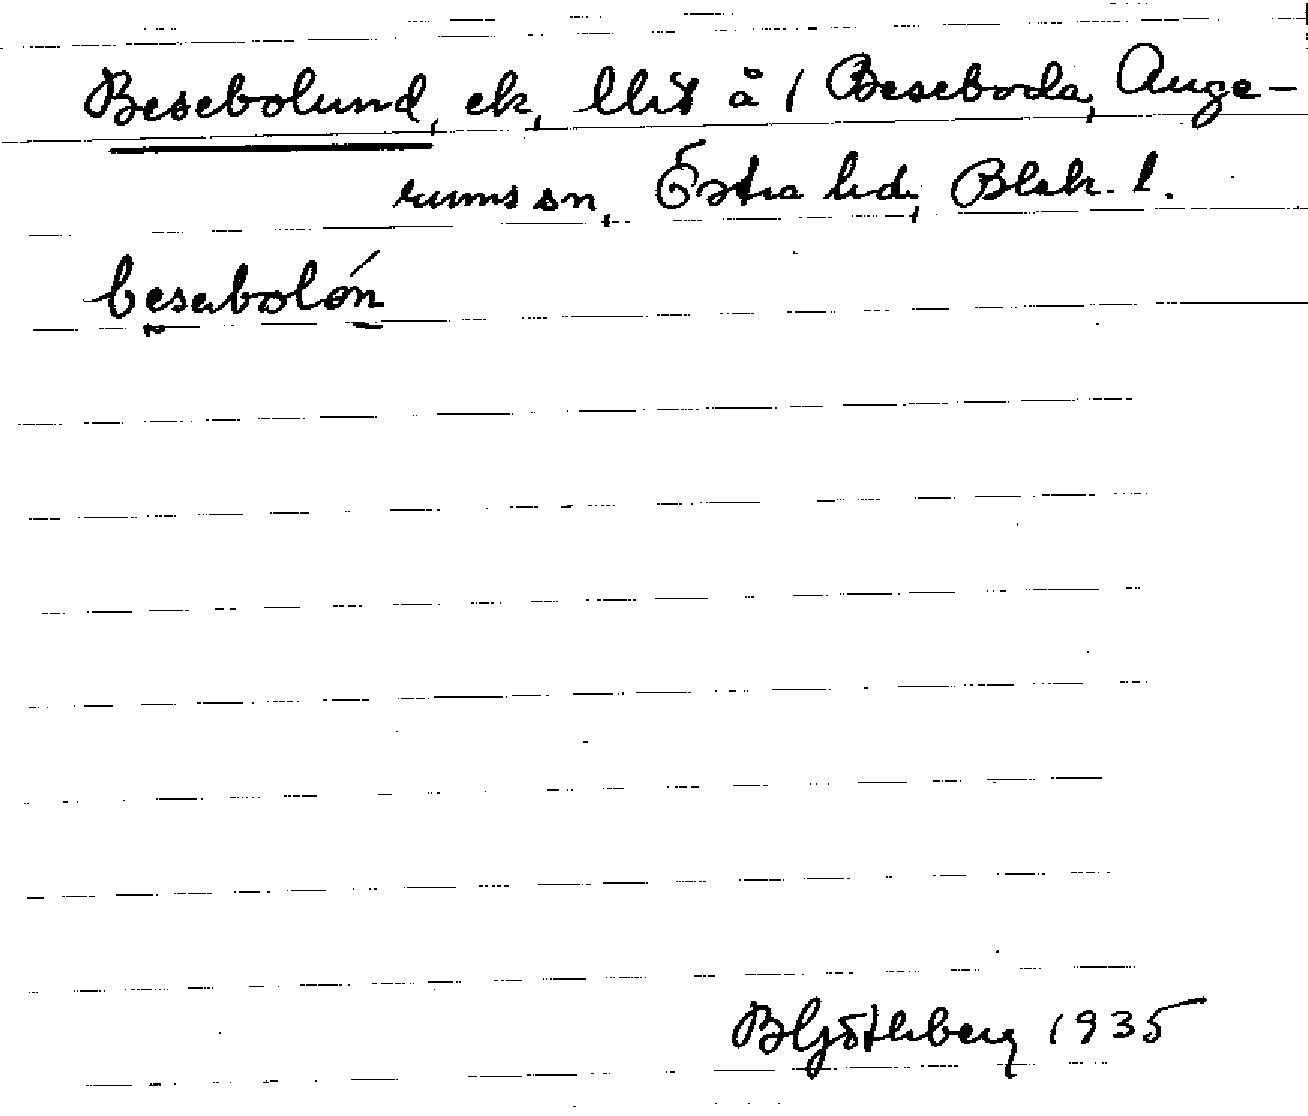 Besebolund, ek, llit å 1 Beseboda, Auge-
rums sn, Östra hd, Blek. l.
besebolón
B Götlberg 1935